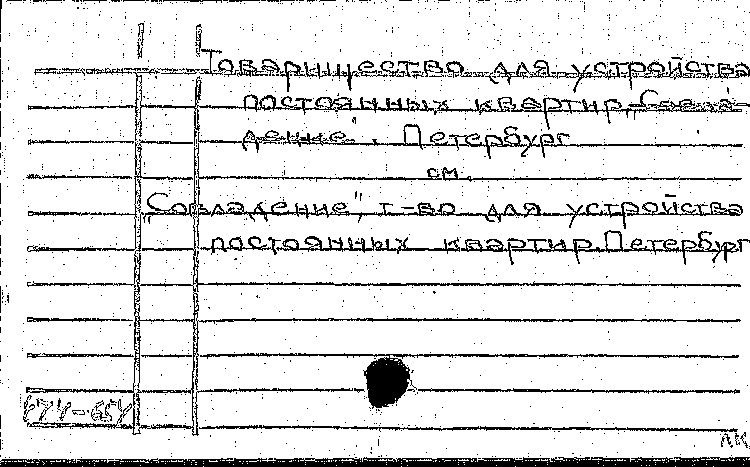 Товарищество для устройства
постоянных квартир „Совла-
дение". Петербург
см.
„Совладение", т-во для устройства
постоянных квартир. Петербург
АК